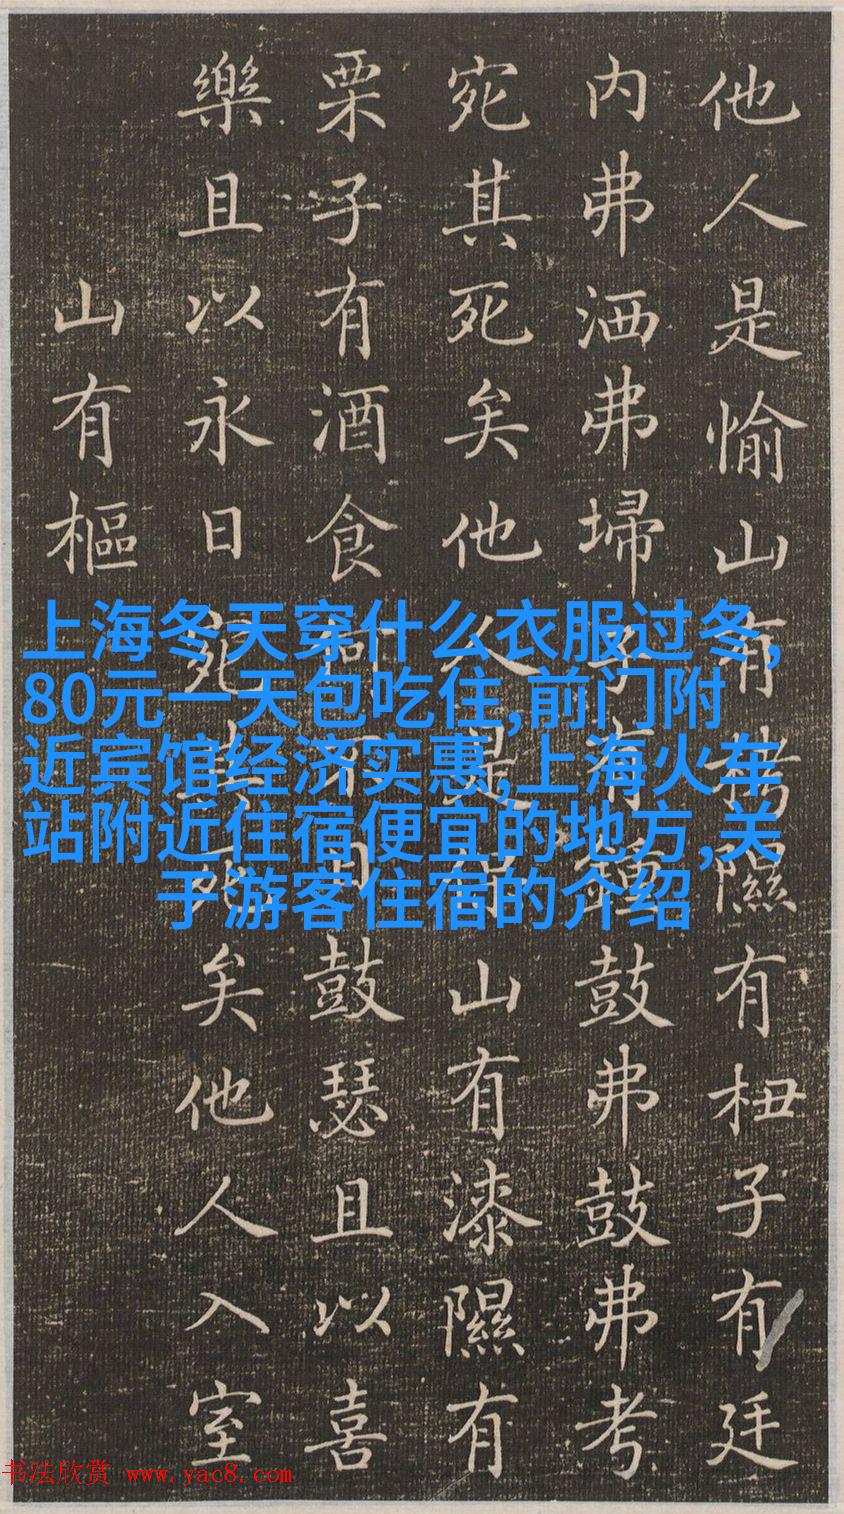 他人是愉山有栲隰有杻子有廷
内弗洒弗埽子有鐘鼓弗鼓弗考
宛其死矣他人是保山有漆隰有
栗子有酒食何不日鼓瑟且以喜
樂且以永日宛其死矣他人入室
山有樞
上海冬天穿什么衣服过冬,
80元一天包吃住,前门附
近宾馆经济实惠,上海火车
站附近住宿便宜的地方,关
于游客住宿的介绍
书法欣赏 www.yac8.com